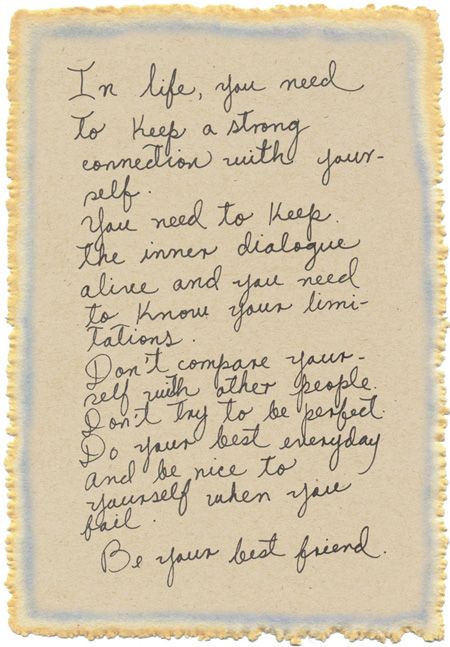 In life, you need
to keep a strong
connection with your-
self.
You need to keep
the inner dialogue
alive and you need
to know your limi-
tations.
Don't compare your-
self with other people.
Don't try to be perfect.
Do your best everyday
and be nice to
yourself when you
fail.
Be your best friend.